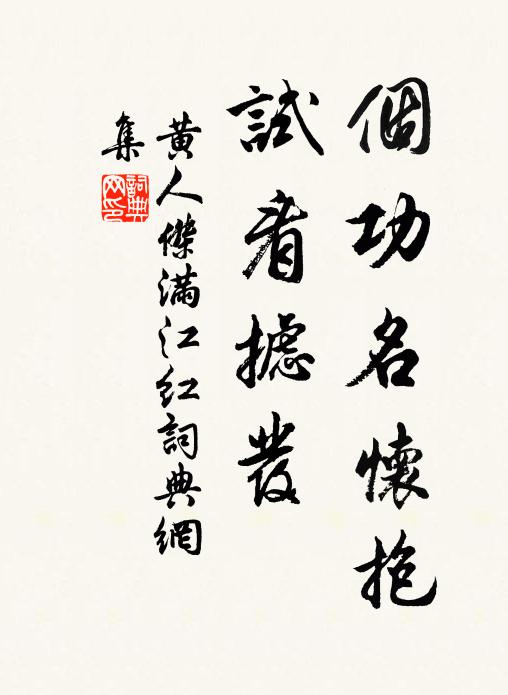 個功名懷抱
試看攄發
黄人傑滿江紅詞典網
集
詞典
网印